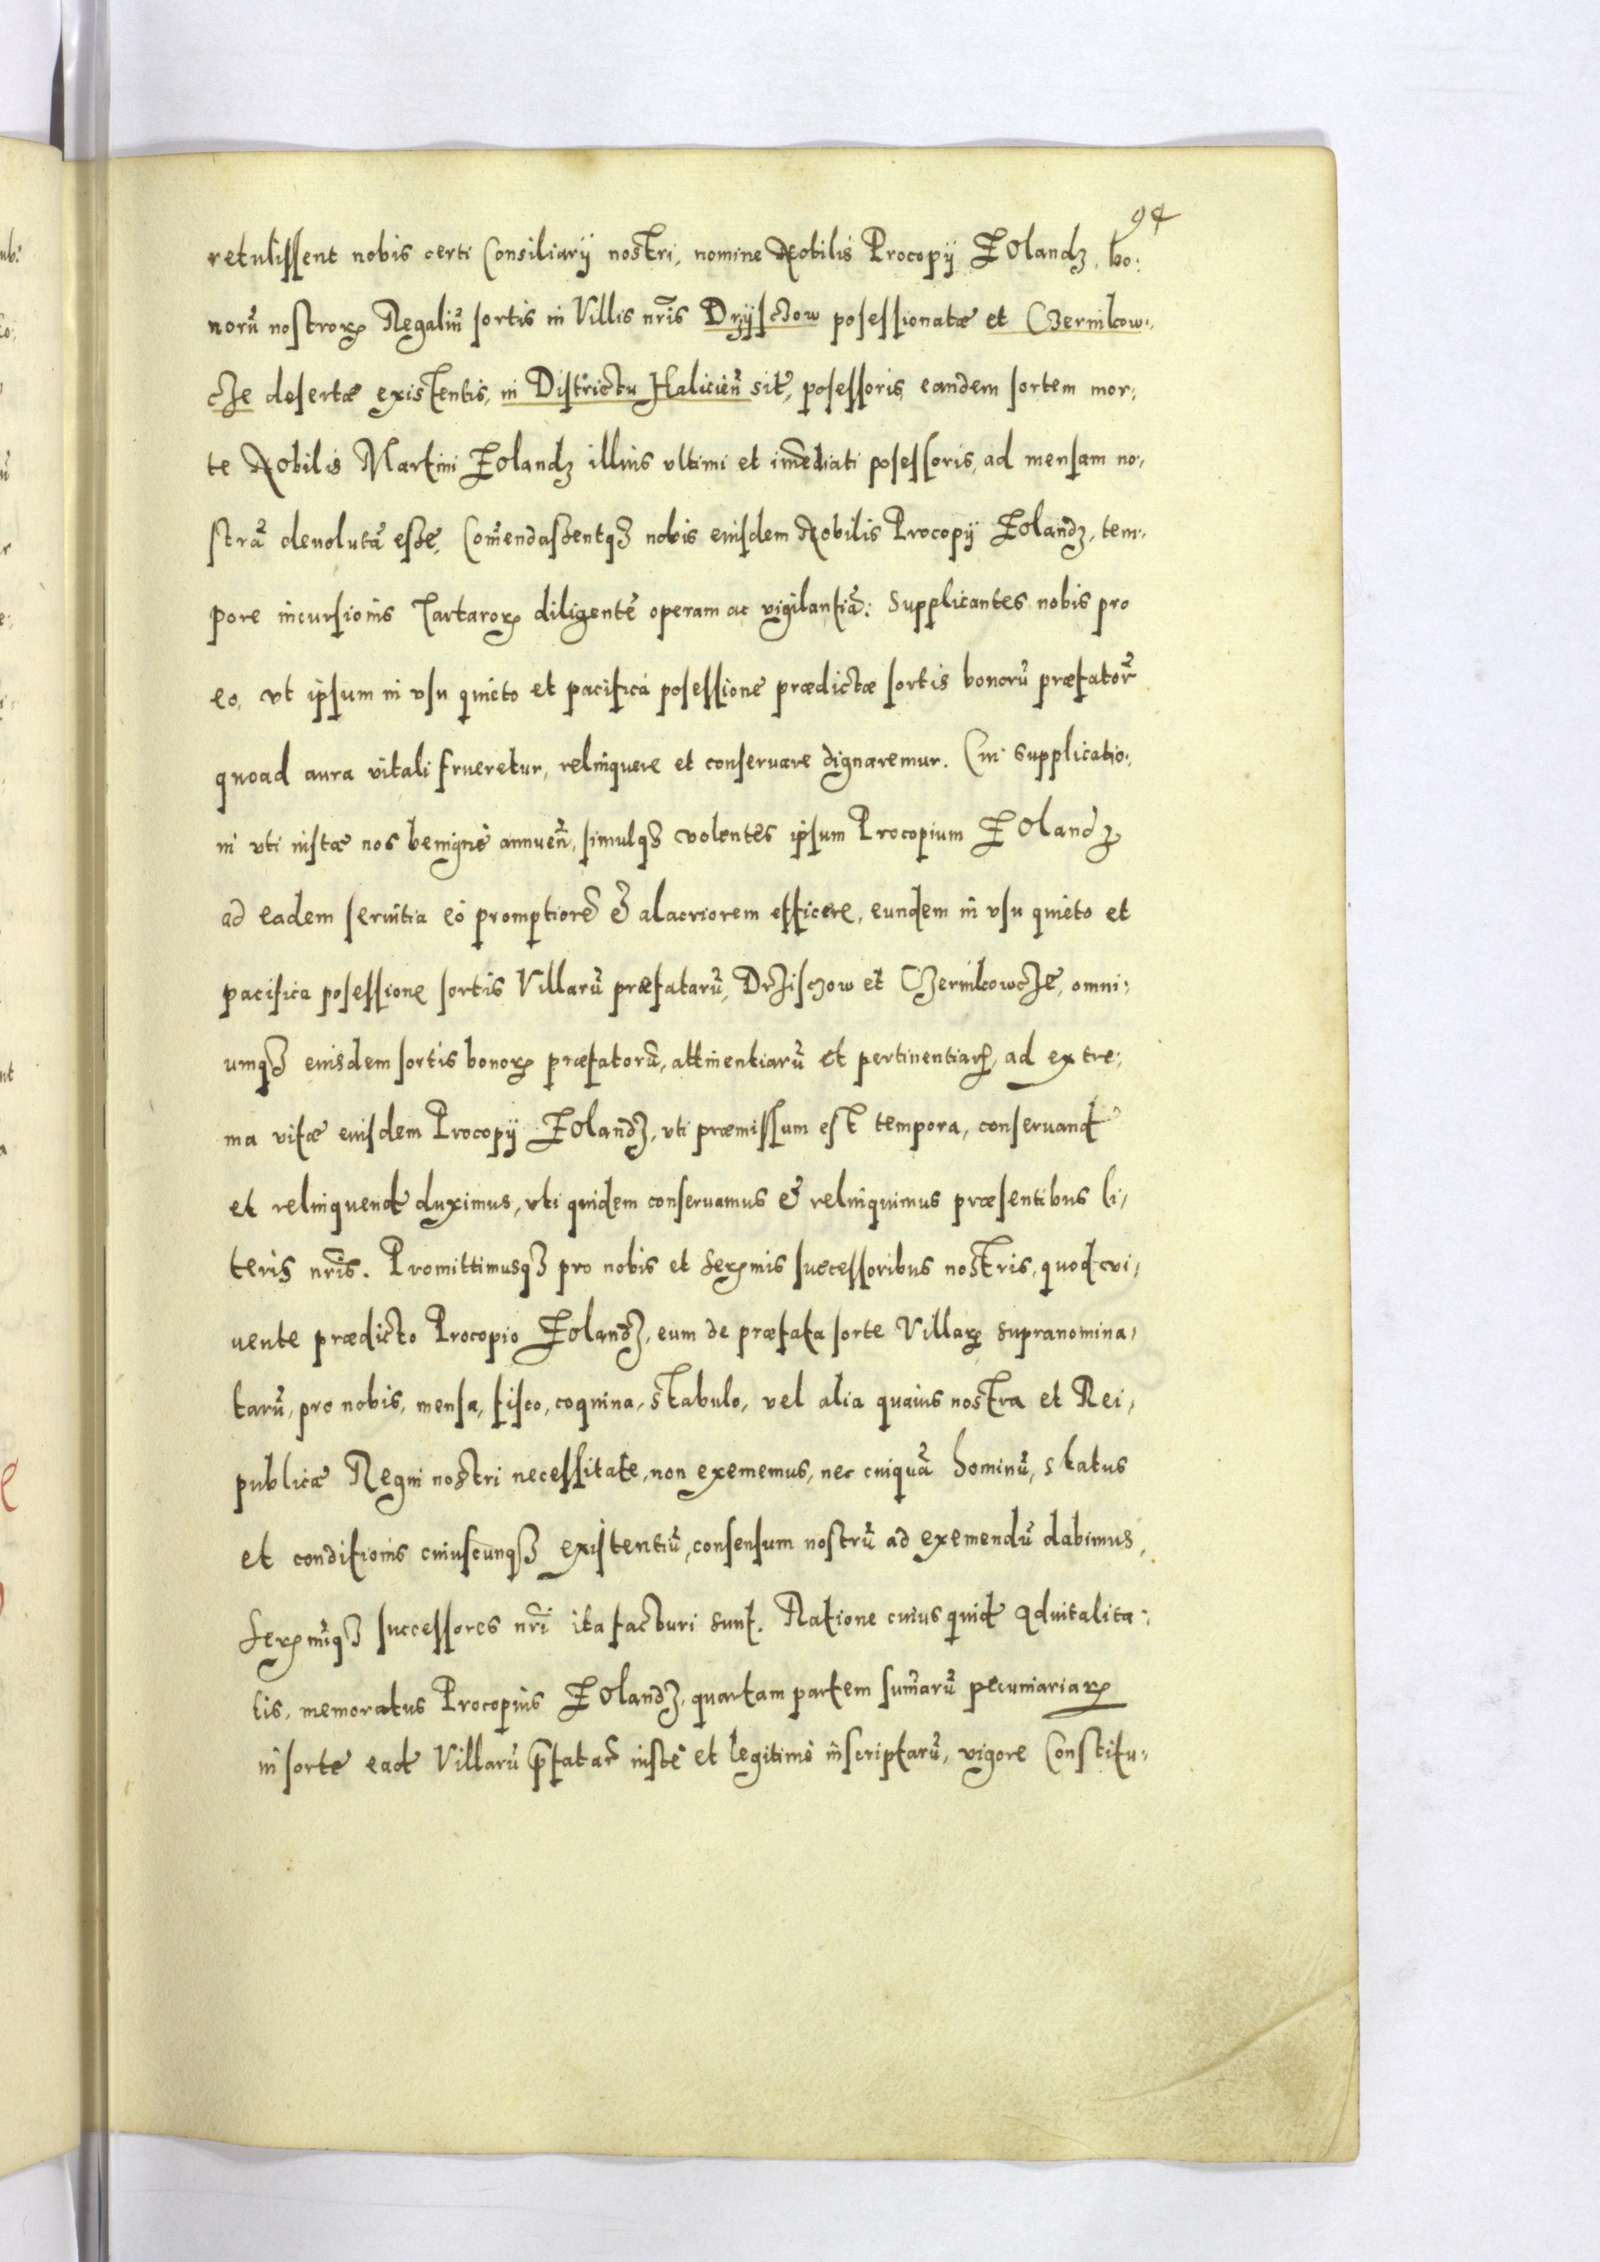 94
retulissent nobis certi Consiliarij nostri, nomine Nobilis Procopij Zolandz, bo:
norū nostrorꝝ Regaliū sortis in Villis nr̃is Drijschow posessionatæ et Czernikow:
cze desertæ existentis, in Districtu Halicieñ sitæ, posessoris, eandem sortem mor:
te Nobilis Martini Zolandz illius vltimi et im̄ediati posessoris, ad mensam no:
strā deuolutā esse, Com̄endassentqꝫ nobis eiusdem Nobilis Procopij Zolandz, tem:
pore incursionis Tartarorꝝ diligentē operam ac vigilantiā: Supplicantes nobis pro
eo, vt ipsum in vsu quieto et pacifica posessione prædictæ sortis bonorū præfator̃
quoad aura vitali frueretur, relinquere et conseruare dignaremur. Cui supplicatio:
ni vti iustæ nos benignè annueñ, simulqꝫ volentes ipsum Procopium Zolandz
ad eadem seruitia eò promptiorē & alacriorem efficere, eundem in vsu quieto et
pacifica posessione sortis Villarū præfatarū, Drziszow et Czernikowcze, omni:
umqꝫ eiusdem sortis bonorꝝ præfatorū, attinentiarū et pertinentiarꝝ, ad extre:
ma vitæ eiusdem Procopij Zolandz, vti præmissum est tempora, conseruand̃
et relinquend̃ duximus, vti quidem conseruamus & relinquimus præsentibus li:
teris nr̃is. Promittimusqꝫ pro nobis et Serꝫmis successoribus nostris, quod vi:
uente prædicto Procopio Zolandz, eum de præfata sorte Villarꝝ supranomina:
tarū, pro nobis, mensa, fisco, coquina, stabulo, vel alia quauis nostra et Rei:
publicæ Regni nostri necessitate, non exememus, nec cuiquā hominū, status
et conditionis cuiuscunqꝫ existentiū, consensum nostrū ad exemendū dabimus,
Serꝫmiqꝫ successores nr̃i ita facturi sunt. Ratione cuius quid̃ aduitalita:
tis, memoratus Procopius Zolandz, quartam partem sum̄arū pecuniariarꝝ
in sorte ead̃ Villarū p̃fatar̃ iustè et legitimè inscriptarū, vigore Constitu: